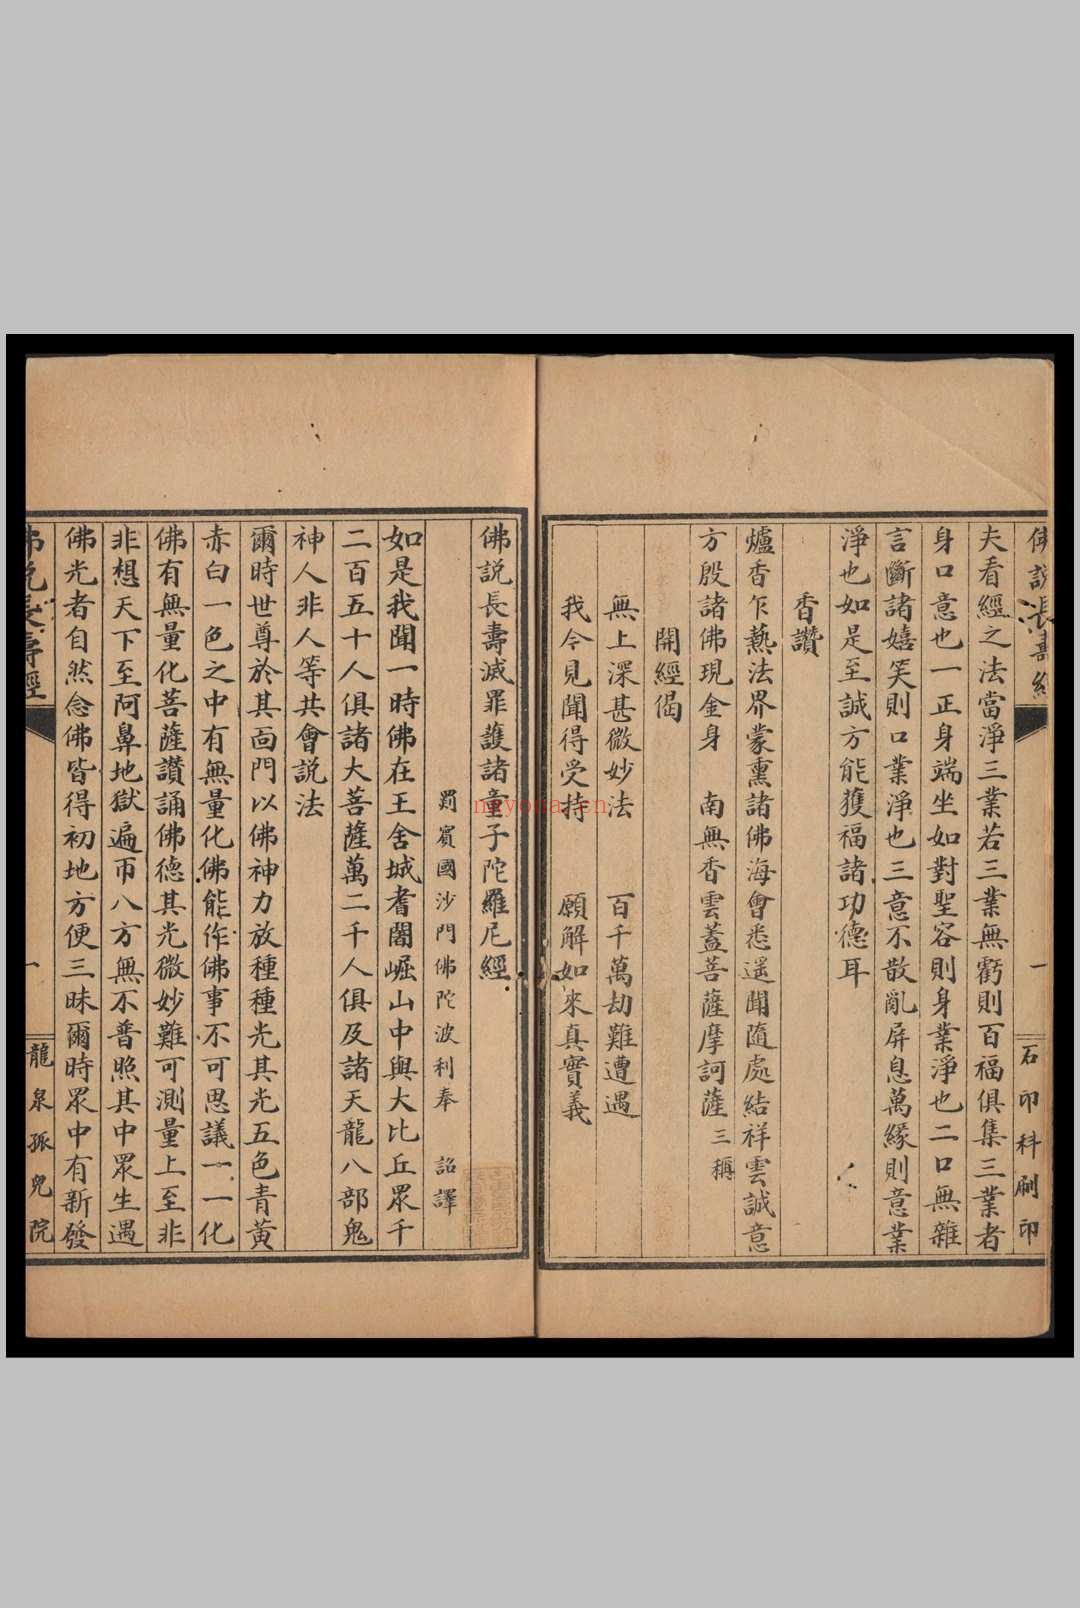 佛説長壽經
一
石印科刷印
夫看經之法當淨三業若三業無虧則百福俱集三業者
身口意也一正身端坐如對聖容則身業淨也二口無雜
言斷諸嬉笑則口業淨也三意不散亂屏息萬緣則意業
淨也如是至誠方能獲福諸功德耳
香讚
爐香乍爇法界蒙熏諸佛海會悉遥聞隨處結祥雲誠意
方殷諸佛現金身 南無香雲蓋菩薩摩訶薩三稱
開經偈
無上深甚微妙法 百千萬劫難遭遇
我今見聞得受持 願解如來真實義
佛説長壽滅罪護諸童子陀羅尼經
罽賓國沙門佛陀波利奉 詔譯
如是我聞一時佛在王舍城耆闍崛山中與大比丘眾千
二百五十人俱諸大菩薩萬二千人俱及諸天龍八部鬼
神人非人等共會説法
爾時世尊於其面門以佛神力放種種光其光五色青黄
赤白一色之中有無量化佛能作佛事不可思議一一化
佛有無量化菩薩讚誦佛德其光微妙難可測量上至非
非想天下至阿鼻地獄遍帀八方無不普照其中眾生遇
佛光者自然念佛皆得初地方便三昧爾時眾中有新發
佛説長壽經
一
龍泉孤兒院